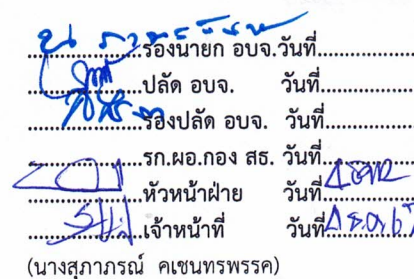 รองนายก อบจ.วันที่
ปลัด อบจ. วันที่
รองปลัด อบจ. วันที่
รก.ผอ.กอง สธ. วันที่
หัวหน้าฝ่าย วันที่
เจ้าหน้าที่ วันที่
(นางสุภาภรณ์ คเชนทรพรรค)